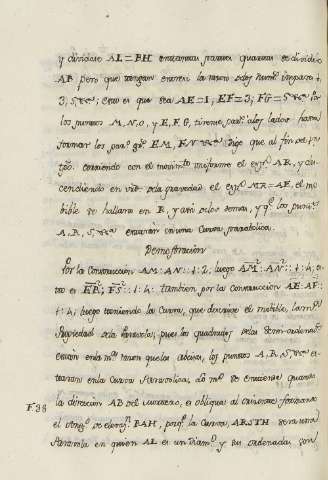 y dividase AL=BH en tantas partes quantas se dividio
AB, pero que tengan entresi la razon de los num.s impares 1,
3, 5, &c.a; esto es que sea AE=1, EF=3, FG=5, &c.a; por
los puntos M, N, O, y E, F, G, tirense paral.s a los lados hasta
formar los par.s EM, FN &c.a Digo que al fin del
corriendo con el movim.to uniforme el esp.o AB, y des
cendiendo en vid de la gravedad el esp.o AE, el mo
bible se hallara en R, y asi de los demas, y q.e los puntos
A, R, S, &c.a estarán en una Curva parabolica.
Demostracion
Por la Construccion AM : AN :: 1 : 2, luego AM² : AN² :: 1 : 4, es
to es ER² : FS² :: 1 : 4. tambien por la Construccion AE : AF ::
1 : 4, luego teniendo la Curva, que descrive el mobible, la m.ma
Propiedad de la Parabola, pues los quadrados de las semi-ordenadas
estan en la m.ma razon que las abcisas, los puntos A, R, S, &c.a es
taran en la Curva Parabolica. Lo m.mo se entiende quando
F. 38 la direccion AB del mortero, es obliqua al orizonte formando
el ang.o de elevaz.n BAH, porq.e la Curva ARSTH sera una
Parabola en quien AL es un Diam.o y sus ordenadas son